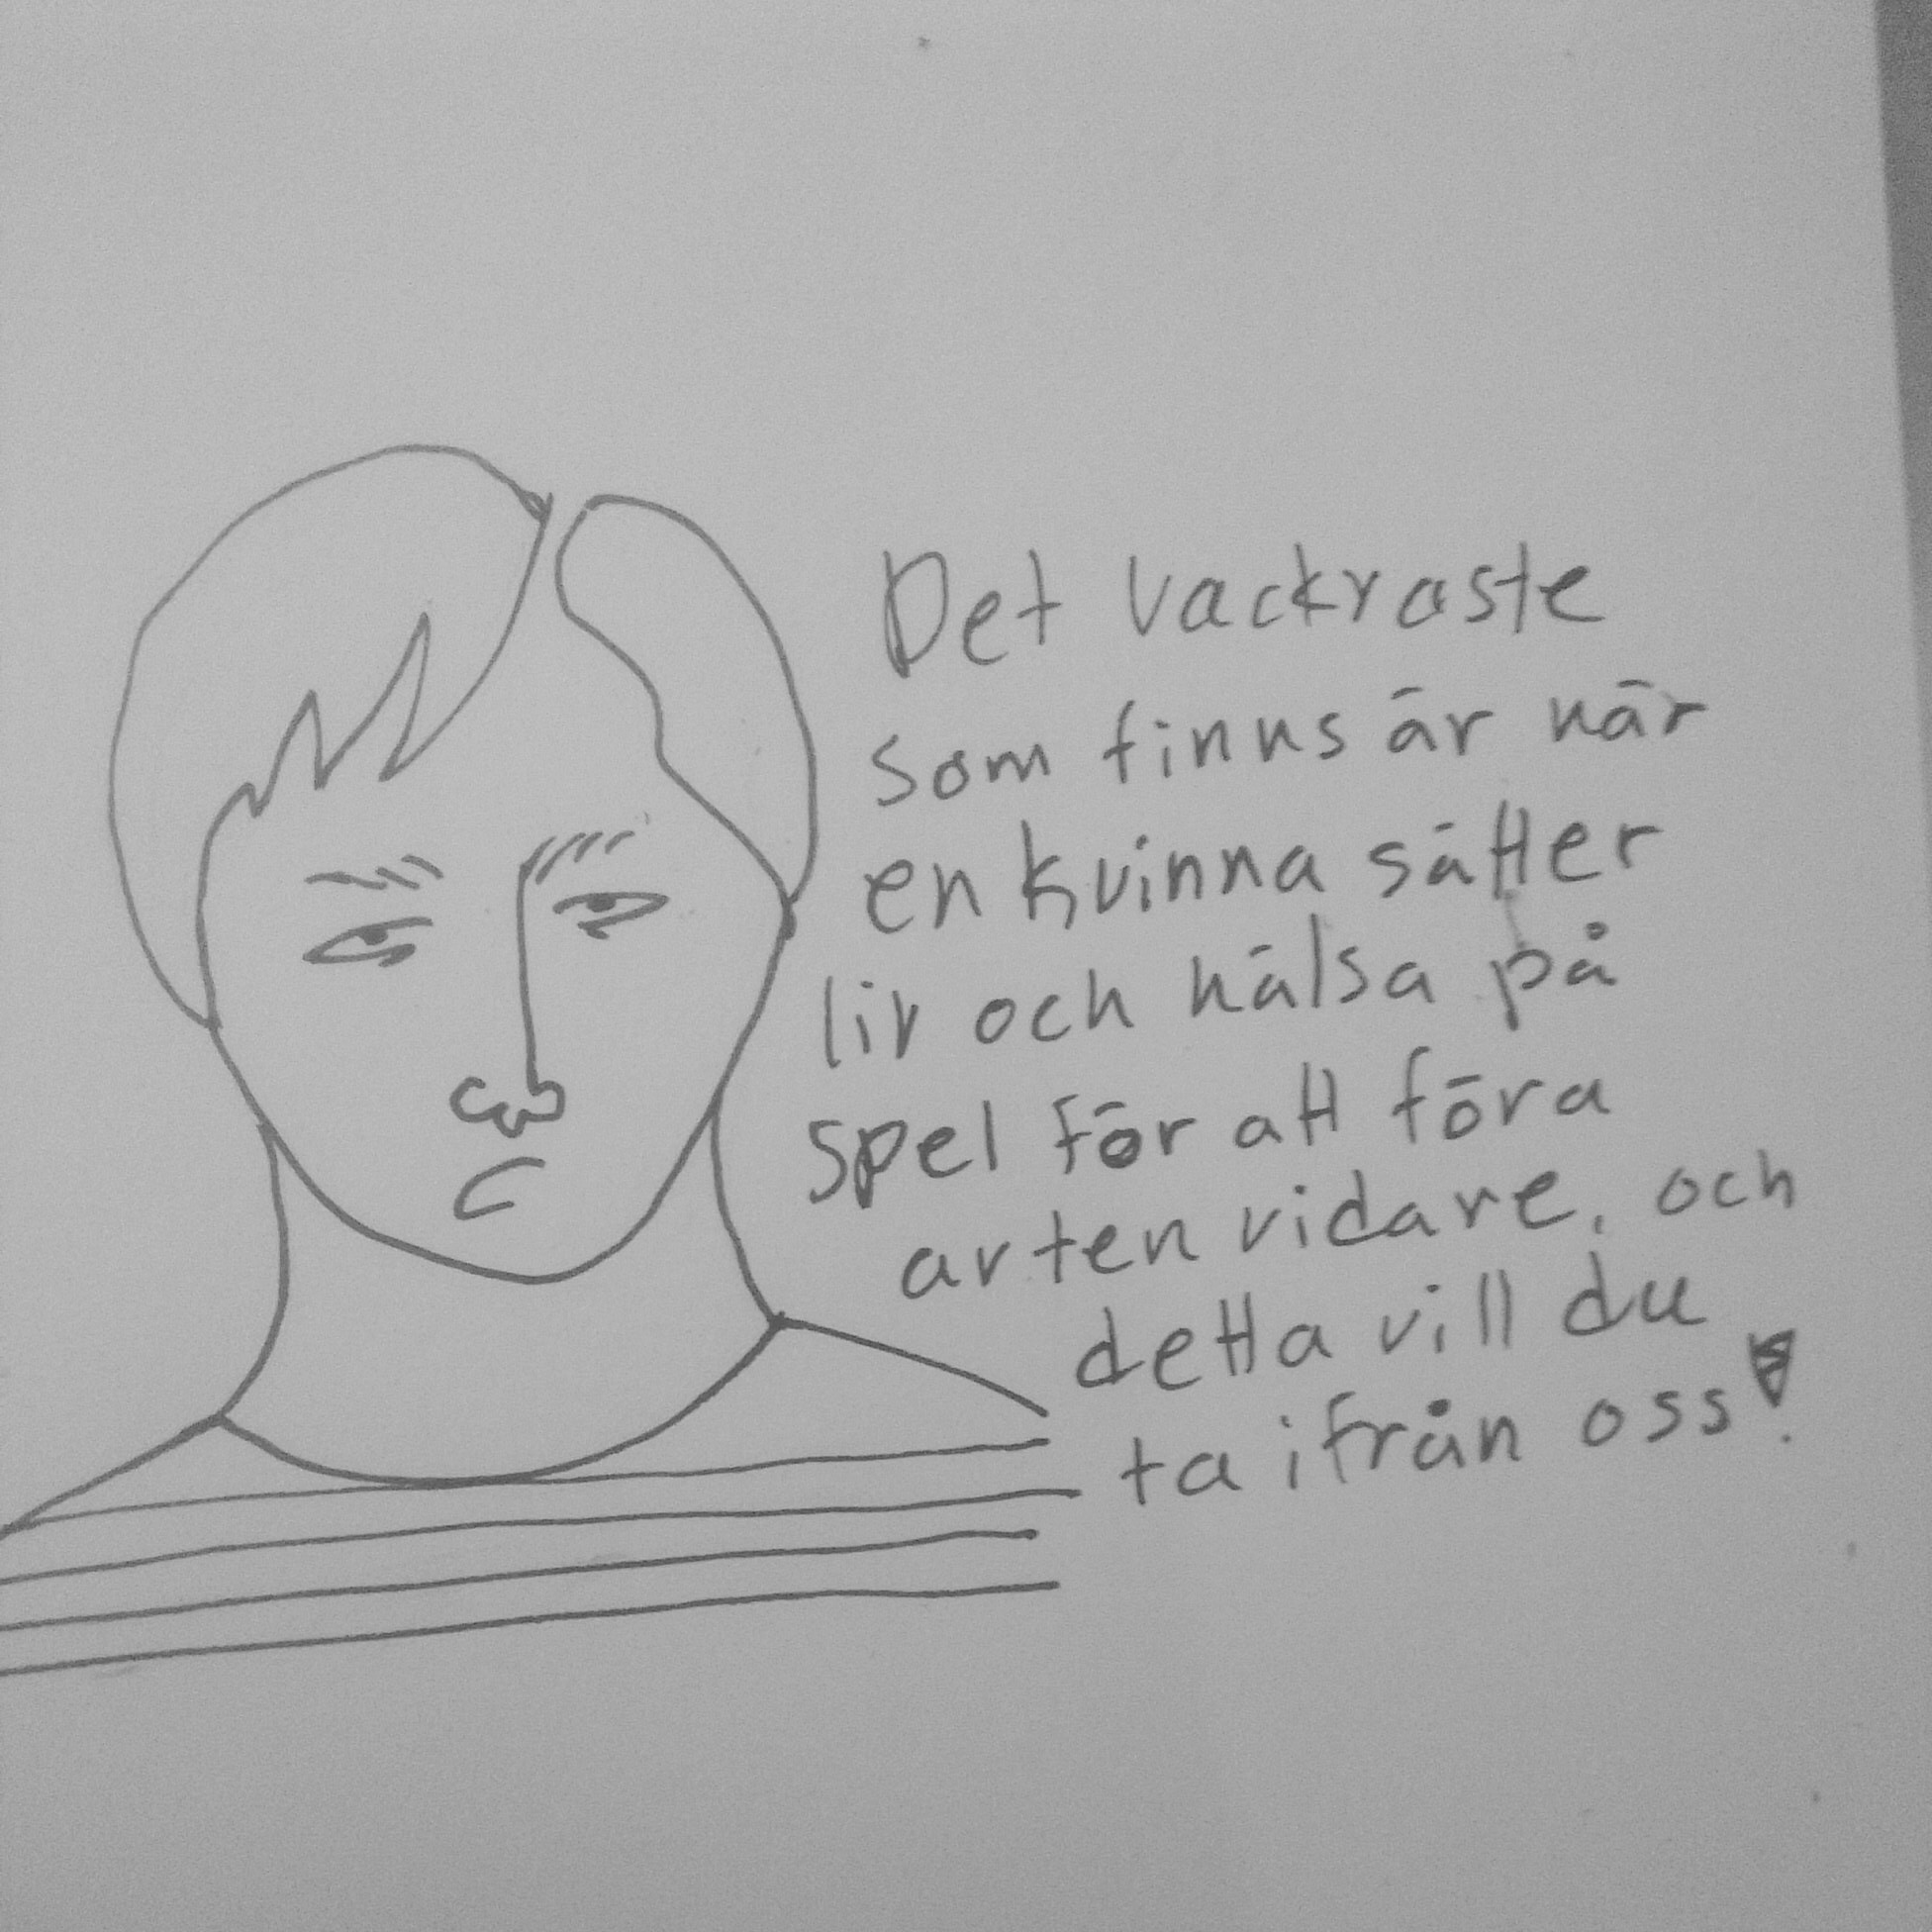 Det vackraste
som finns är när
en kvinna sätter
liv och hälsa på
spel för att föra
arten vidare, och
detta vill du
ta ifrån oss!